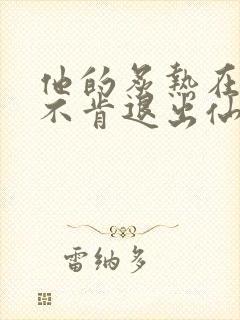 他的炙热在
不肯退出仙
雷纳多